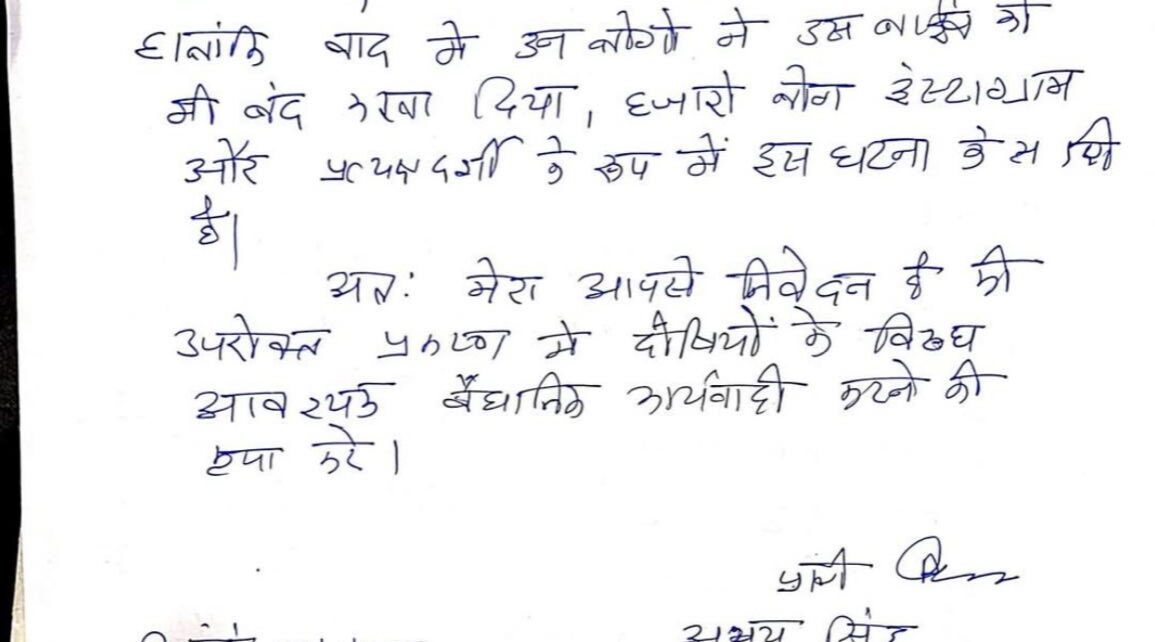 हालांकि बाद मे उन लोगो ने उस लाईव को
भी बंद करवा दिया, हजारो लोग इंस्टाग्राम
और प्रत्यक्षदर्शी के रूप में इस घटना के साक्षी
है।
अतः मेरा आपसे निवेदन है की
उपरोक्त प्रकरण मे दोषियों के विरूध
आवश्यक वैधानिक कार्यवाही करने की
कृपा करे।
प्रार्थी
अभय सिंह